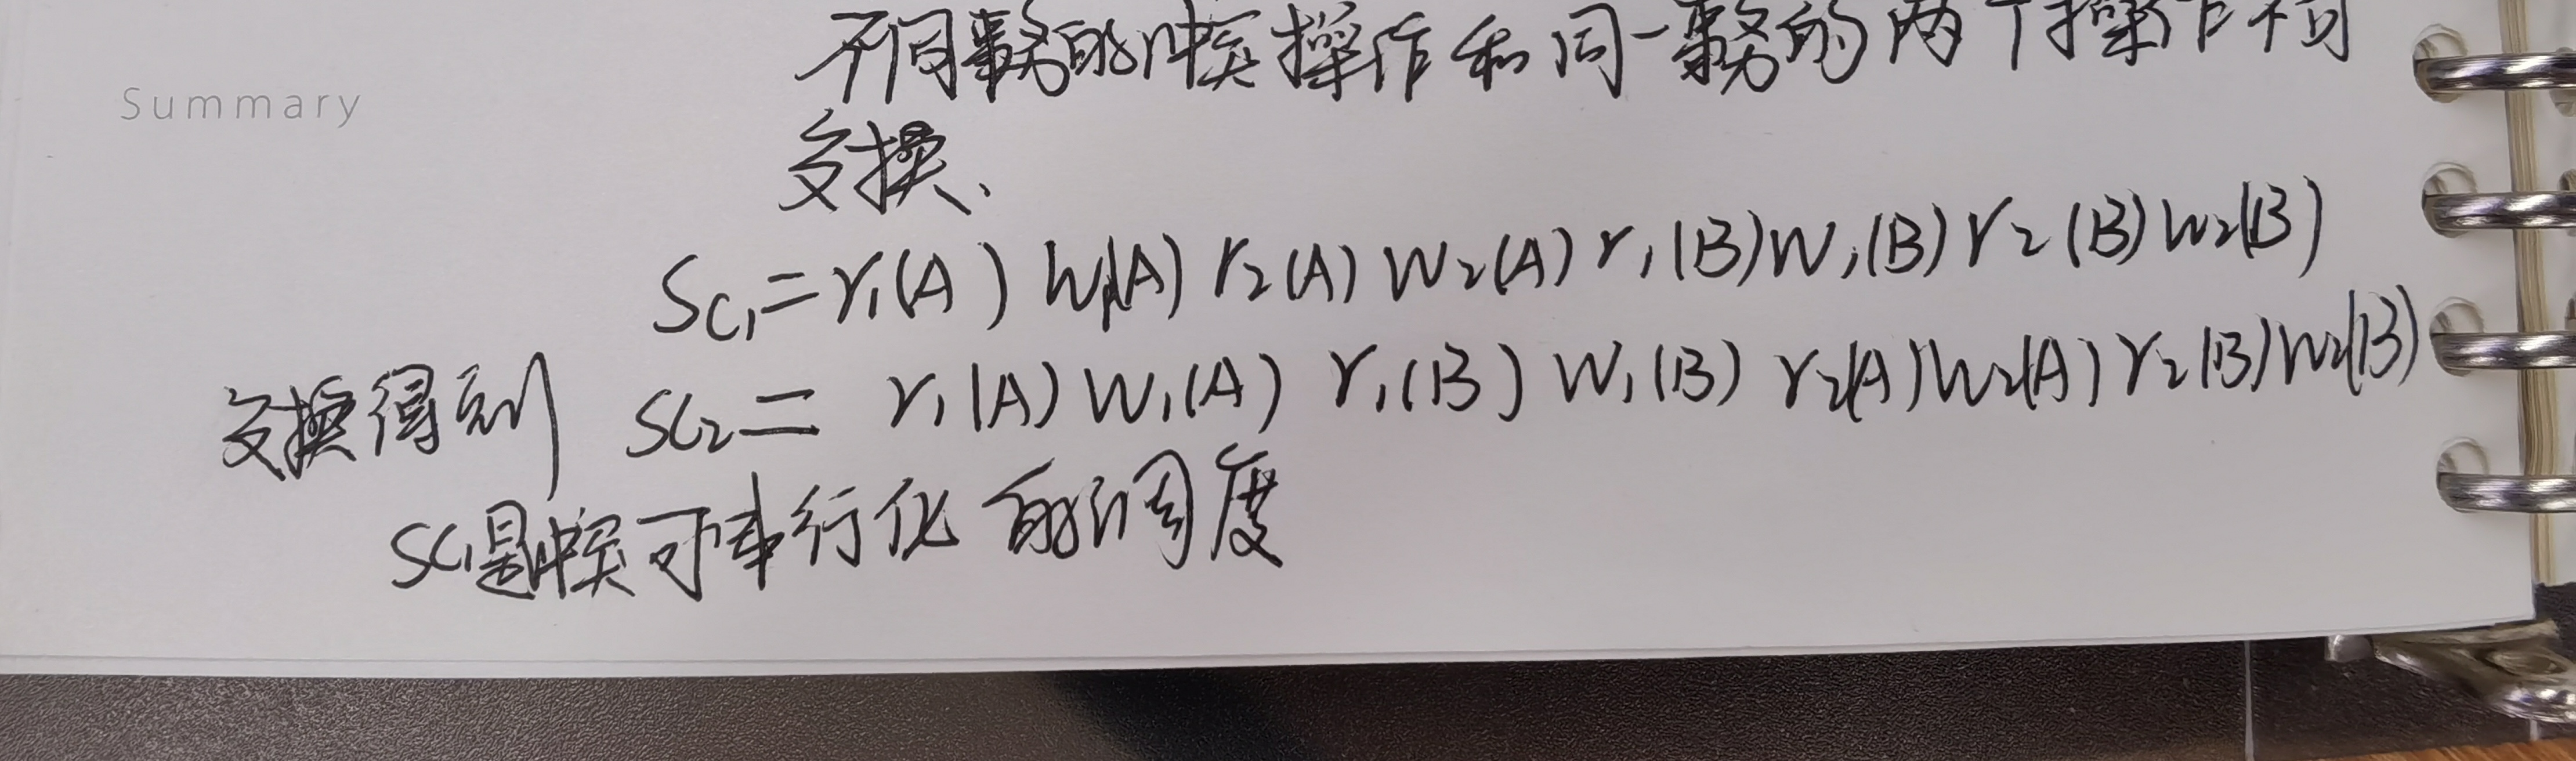 不同事务的冲突操作和同一事务的两个操作不可
Summary
交换、
Sc₁=r₁(A) W₁(A) r₂(A) W₂(A) r₁(B)W₁(B) r₂(B)W₂(B)
交换得到 Sc₂= r₁(A) W₁(A) r₁(B) W₁(B) r₂(A)W₂(A) r₂(B)W₂(B)
Sc₁是冲突可串行化的调度